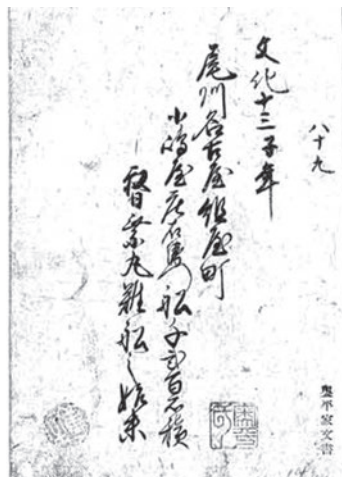 八十九
文化十三子年
尾州名古屋組屋町
小嶋屋庄右衛門船千弐百石積
督乗丸難船之始末
家文書